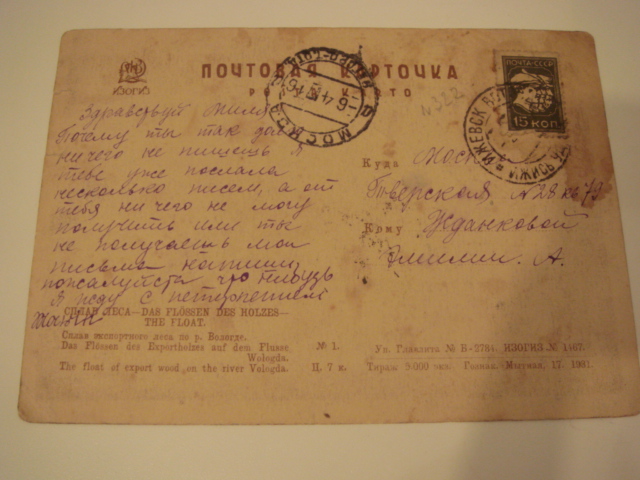 ИЗОГИЗ
ПОЧТОВАЯ КАРТОЧКА
МОСКВА
ПОЧТА СССР
15 КОП.
ИЖЕВСК
Здравствуй Миля
Почему ты так
ничего не пишешь я
тебе уже послала
несколько писем, а от
тебя ничего не могу
получить или ты
не получаешь мои
письма напиши
пожалуйста что нибудь
Я жду с нетерпением
№322
Куда Москва
Тверская №28 кв
Кому Жданковой
Эмилии. А.
СПЛАВ ЛЕСА—DAS FLÖSSEN DES HOLZES—
THE FLOAT.
Сплав экспортного леса по р. Вологде.
Das Flössen des Exportholzes auf dem Flusse
Wologda.
The float of export wood on the river Vologda.
№ 1.
Ц. 7 к.
Уп. Главлита № В-2784. ИЗОГИЗ № 1467.
Тираж 9.000 экз. Гознак. Мытная, 17. 1931.